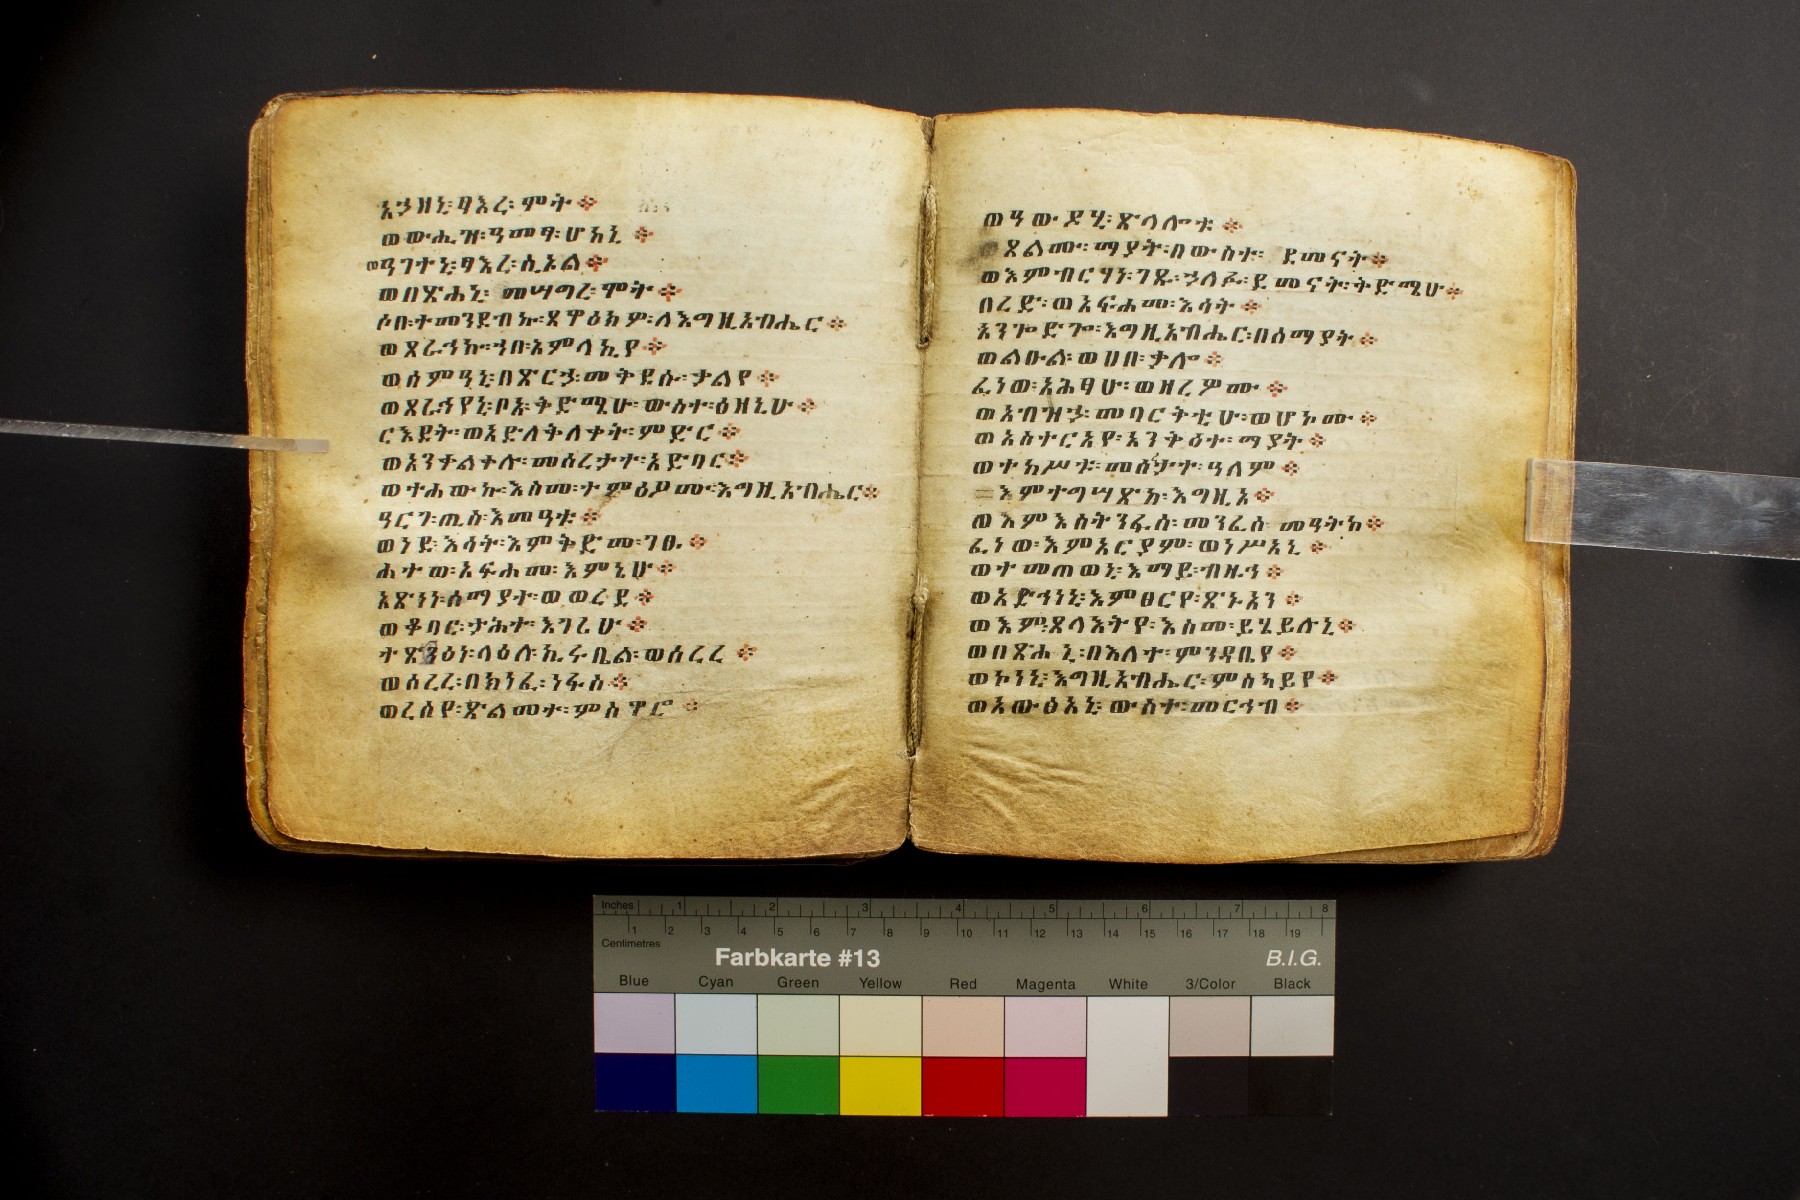 አኃዘኒ፡ ፃእረ፡ ሞት ፨
ወውሒዝ፡ ዓመፃ፡ ሆከኒ ፨
ወዓገተኒ፡ ፃእረ፡ ሲኦል ፨
ወበጽሐኒ፡ መሣግረ፡ ሞት ፨
ሶበ፡ ተመንደብኩ፡ ጸዋዕክዎ፡ ለእግዚአብሔር ፨
ወጸራኅኩ፡ ኀበ፡ አምላኪየ ፨
ወሰምዓኒ፡ በጽርኃ፡ መቅደሱ፡ ቃልየ ፨
ወጸራኅየኒ፡ ቦአ፡ ቅድሜሁ፡ ውስተ፡ ዕዘኒሁ ፨
ርእደት፡ ወአድለቅለቀት፡ ምድር ፨
ወአንቀልቀሉ፡ መሰረታተ፡ አድባር ፨
ወተሐውኩ፡ እስመ፡ ተምዕዖሙ፡ እግዚአብሔር ፨
ዓርገ፡ ጢስ፡ እመዓቱ ፨
ወነደ፡ እሳት፡ እምቅድመ፡ ገፁ ፨
ሐተወ፡ አፍሐመ፡ እምኒሁ ፨
አጽነነ፡ ሰማያተ፡ ወወረደ ፨
ወቆባር፡ ታሕተ፡ እገሪሁ ፨
ተጽዕነ፡ ላዕለ፡ ኪሩቤል፡ ወሰረረ ፨
ወሰረረ፡ በክነፈ፡ ነፋስ ፨
ወረሰየ፡ ጽልመተ፡ ምስዋሮ ፨
ወዓውዶሂ፡ ጽላሎቱ ፨
ወጸልመ፡ ማያት፡ በውስተ፡ ደመናት ፨
ወእምብርሃነ፡ ገጹ፡ ኃለፉ፡ ደመናት፡ ቅድሜሁ ፨
በረድ፡ ወአፍሐመ፡ እሳት ፨
አንጐድጐ፡ እግዚአብሔር፡ በሰማያት ፨
ወልዑል፡ ወሀበ፡ ቃሎ ፨
ፈነወ፡ አሕፃሁ፡ ወዘረዎሙ ፨
ወአብዝኃ፡ መባርቅቲሁ፡ ወሆኮሙ ፨
ወአስተርአየ፡ አንቅዕተ፡ ማያት ፨
ወተከሥተ፡ መሰታተ፡ ዓለም ፨
እምተግሣጽከ፡ እግዚአ ፨
ወእምእስትንፋሰ፡ መንፈሰ፡ መዓትከ ፨
ፈነወ፡ እምአርያም፡ ወነሥአኒ ፨
ወተመጠወኒ፡ እማይ፡ ብዙኅ ፨
ወአድኅነኒ፡ እምፀርየ፡ ጽኑአን ፨
ወእም፡ጸላእትየ፡ እስመ፡ ይሄይሉኒ ፨
ወበጽሐኒ፡ በእለተ፡ ምንዳቤየ ፨
ወኮነኒ፡ እግዚአብሔር፡ ምስካይየ ፨
ወአውፅአኒ፡ ውስተ፡ መርኅብ ፨
Inches 1 2 3 4 5 6 7 8
1 2 3 4 5 6 7 8 9 10 11 12 13 14 15 16 17 18 19
Centimetres
Farbkarte #13 B.I.G.
Blue Cyan Green Yellow Red Magenta White 3/Color Black